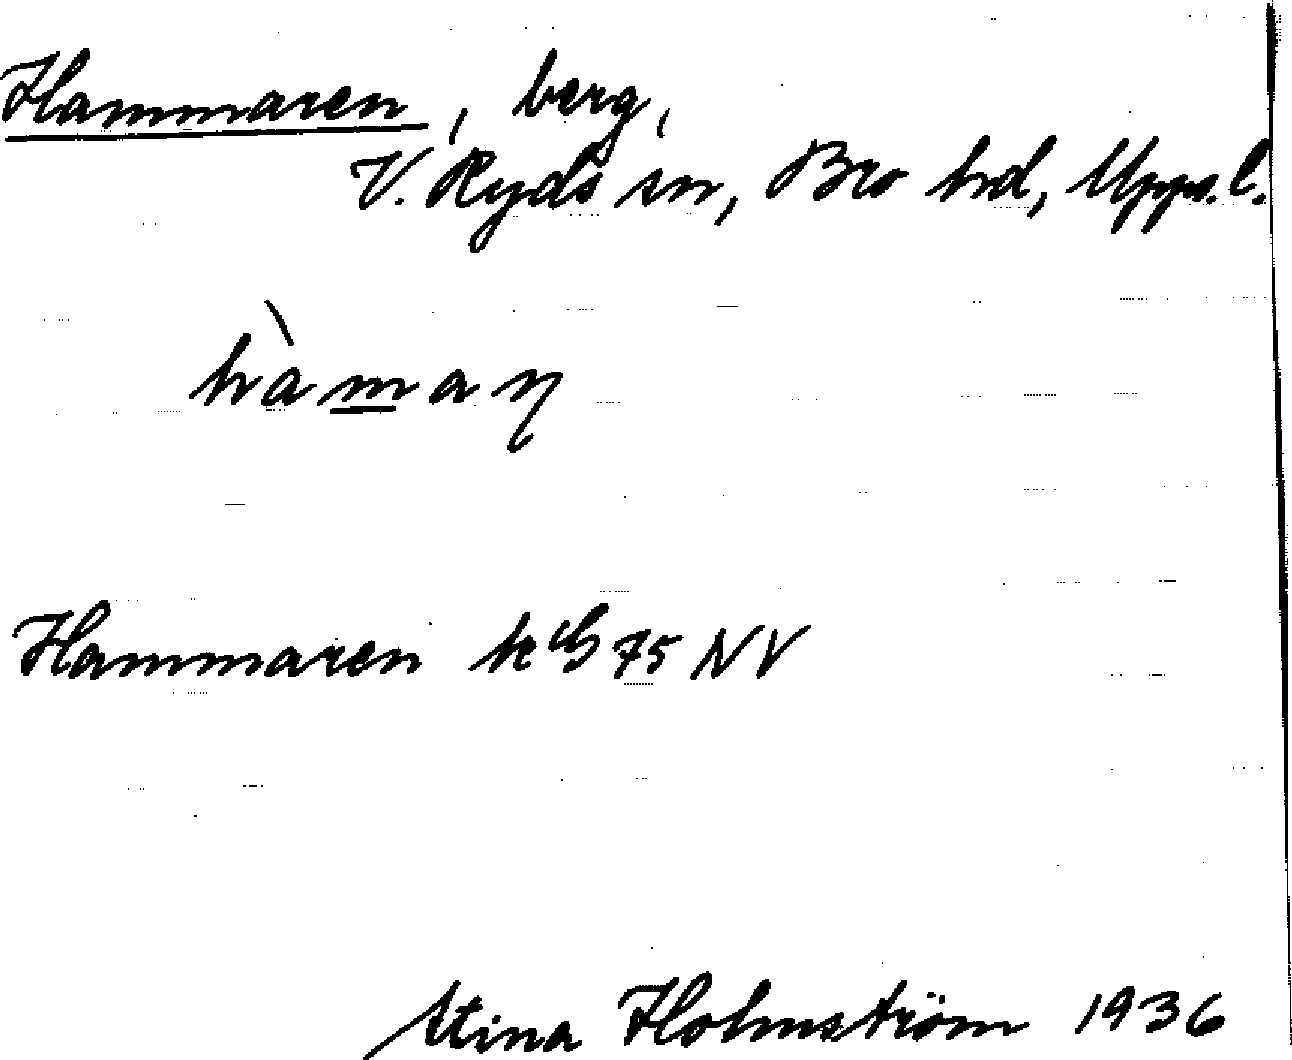 Hammaren, berg,
V. Ryds sn, Bro hd, Upps. l.
hàmaŋ
Hammaren 75 NV
Stina Holmström 1936